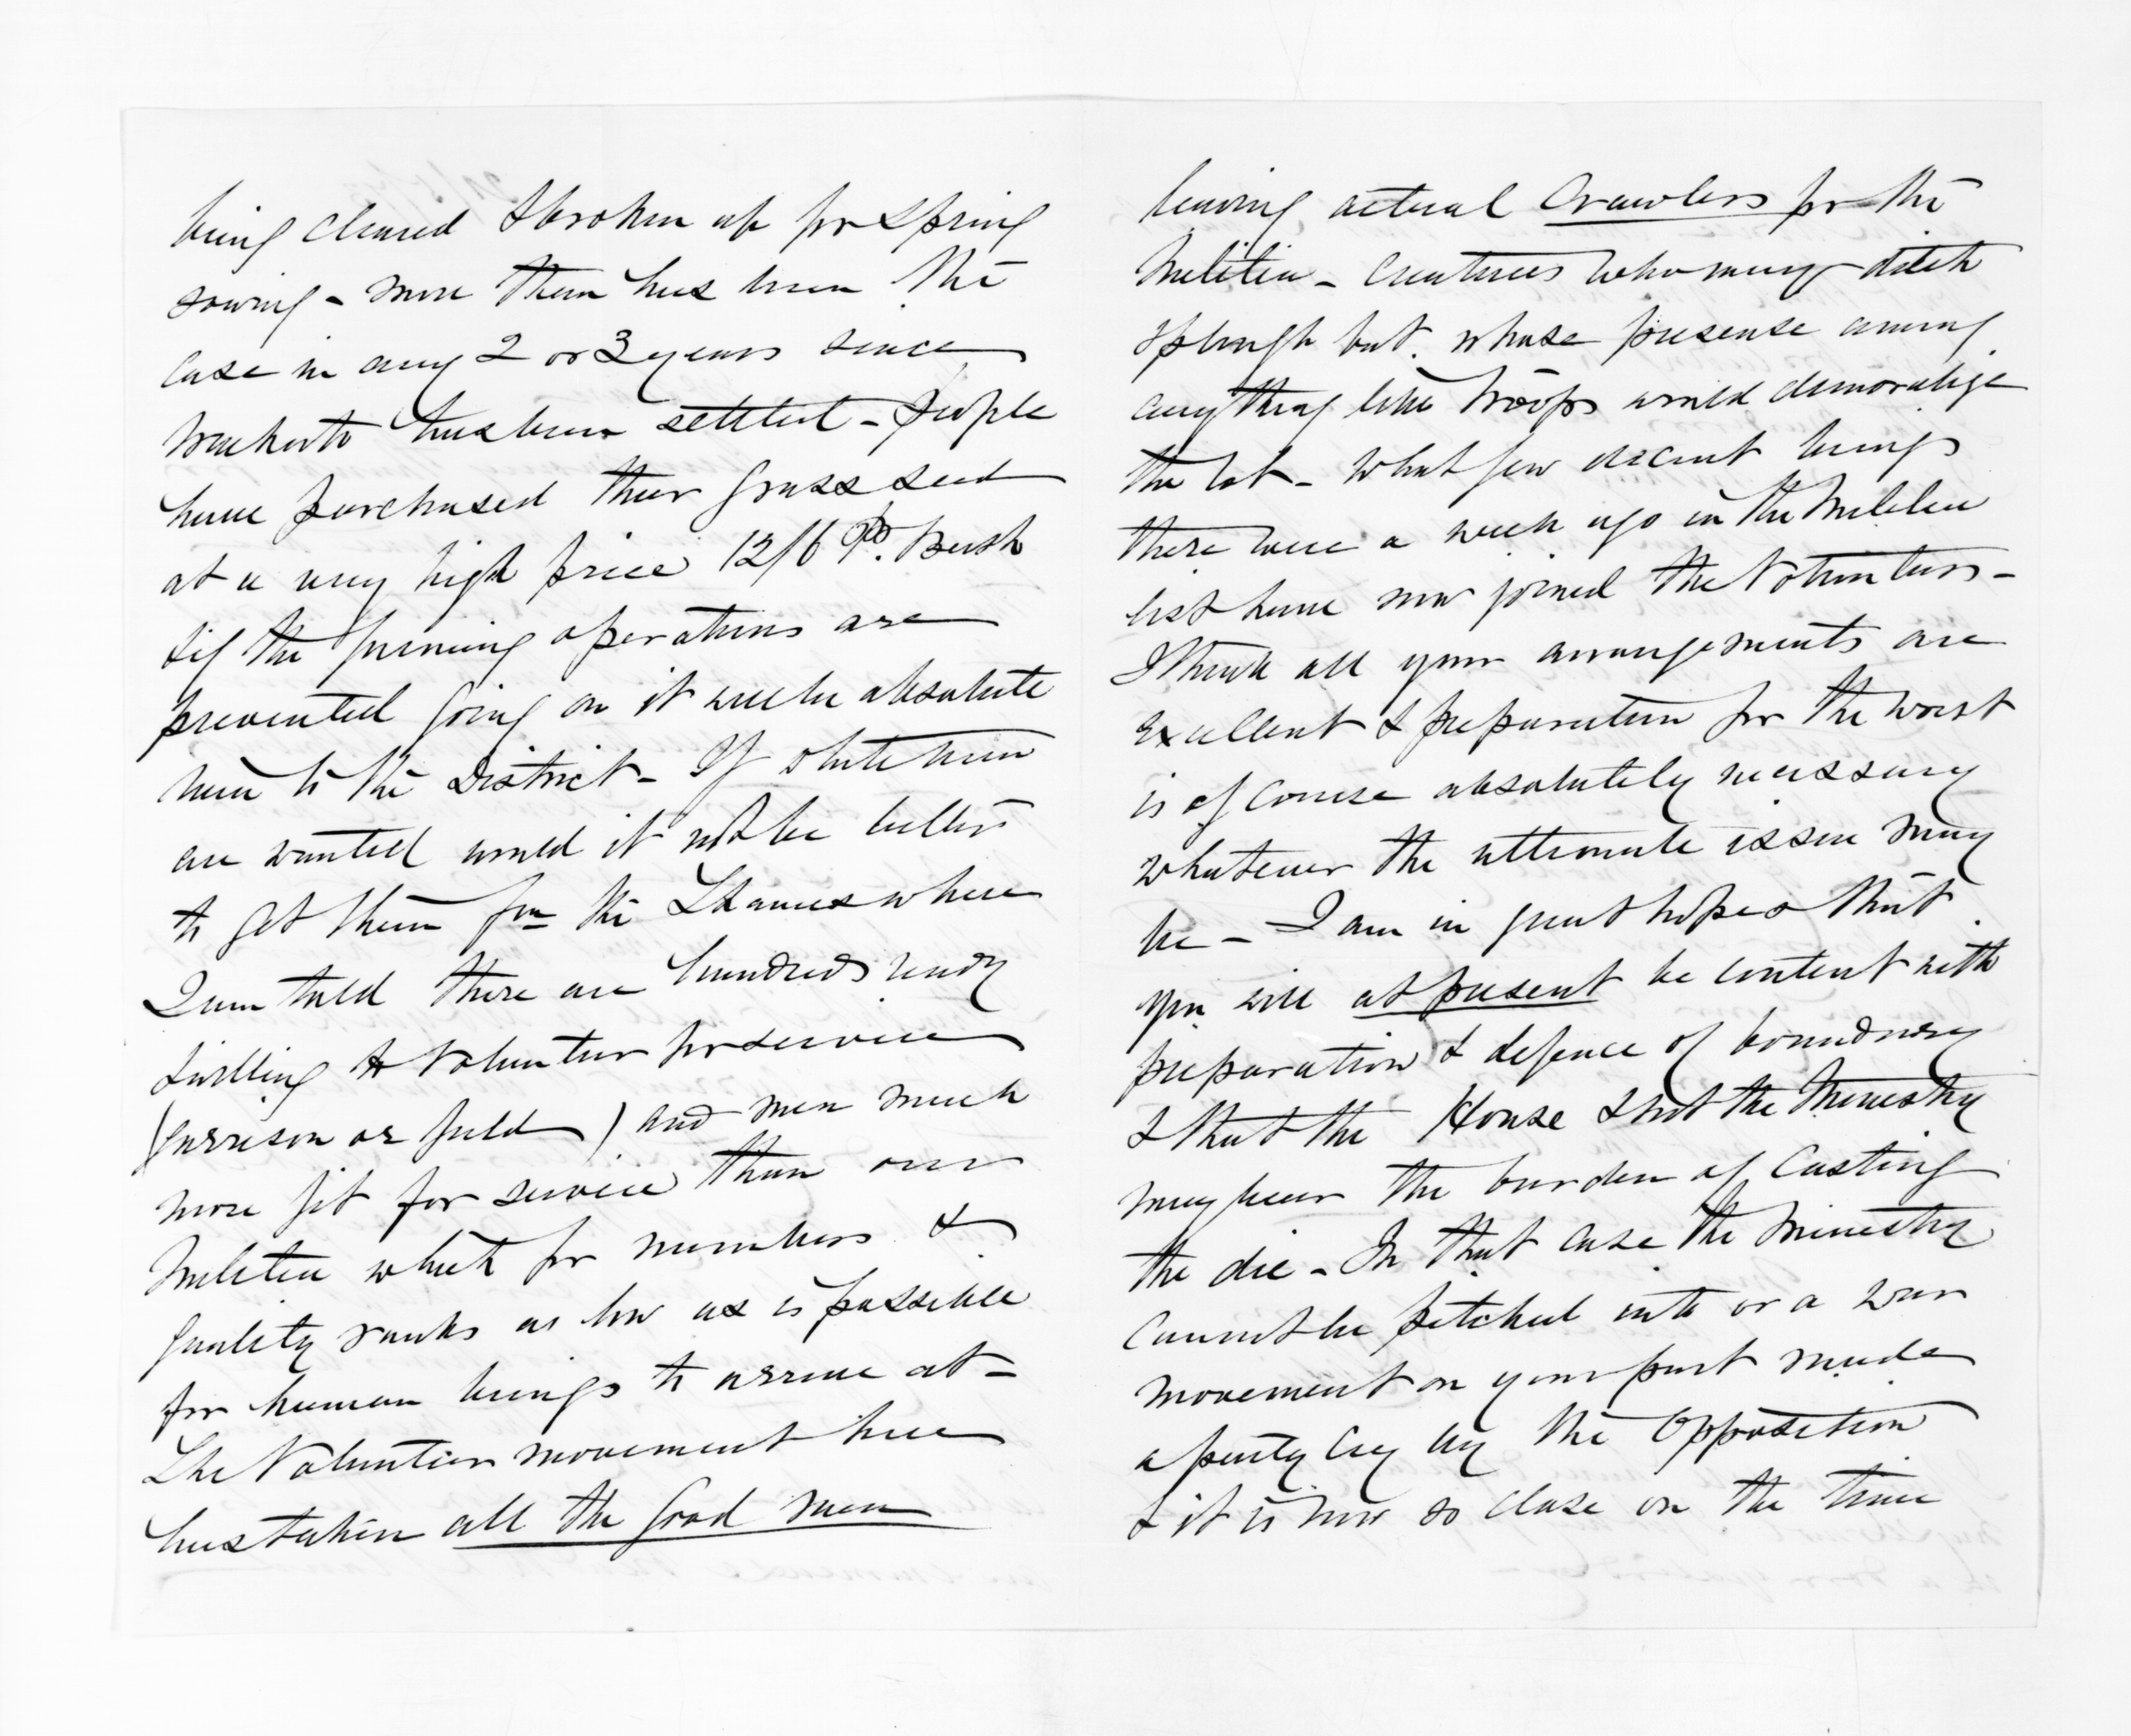 being cleared & broken up for Spring
sowing - more than has been the
case in any 2 or 3 years since
Waikato has been settled - People
have purchased their grass seed
at a very high price 12/6 Pr. Bush
& if the farming operations are
prevented going on it will be absolute
ruin to the District - If white men
are wanted would it not be better
to get them fm the Thames where
I am told there are hundreds ready
& willing to volunteer for service
(garrison or field) and men much
more fit for service than our
Militia which for numbers &
quality ranks as low as is possible
for human beings to arrive at -
The Volunteer movement here
has taken all the good men
leaving actual Crawlers for the
Militia - Creatures who may ditch
& plough but whose presense among
anything like troops would demoralize
the lot - What few decent beings
there were a week ago in the Militia
list have now joined the Volunteers -
I think all your arrangements are
excellent & preparation for the worst
is of course absolutely necessary
whatever the ultimate issue may
be - I am in great hopes that
you will at present be content with
preparation & defence of boundary
& that the House & not the Ministry
may bear the burden of Casting
the die - In that case the Ministry
cannot be pitched into or a war
movement on your part made
a party cry by the Opposition
& it is now so close on the time